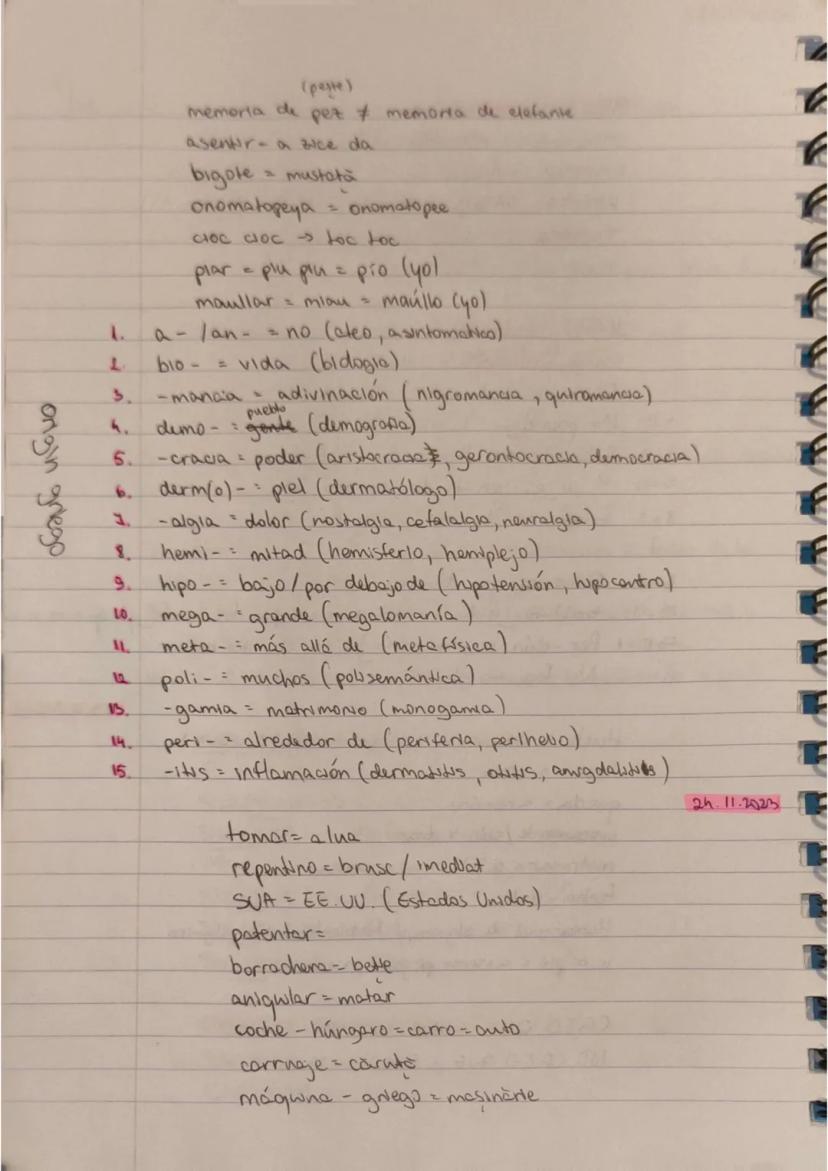 (pește)
memoria de pez ≠ memoria de elefante
asentir = a zice da
bigote = mustață
onomatopeya = onomatopee
cloc cloc → toc toc
piar = piu piu = pío (yo)
maullar = miau = maúllo (yo)
origin griego
1. a- /an- = no (ateo, asintomatico)
2. bio- = vida (biología)
3. -mancia = adivinación (nigromancia, quiromancia)
4. demo- = gente pueblo (demografía)
5. -cracia = poder (aristocracia, gerontocracia, democracia)
6. derm(o)- = piel (dermatólogo)
7. -algia = dolor (nostalgia, cefalalgia, neuralgia)
8. hemi- = mitad (hemisferio, hemiplejo)
9. hipo- = bajo/por debajo de (hipotensión, hipocentro)
10. mega- = grande (megalomanía)
11. meta- = más allá de (metafísica)
12 poli- = muchos (polisemántica)
13. -gamia = matrimonio (monogamia)
14. peri- = alrededor de (periferia, perihelio)
15. -itis = inflamación (dermatitis, otitis, amigdalitis)
24.11.2023
tomar = a lua
repentino = brusc / imediat
SUA = EE.UU. (Estados Unidos)
patentar =
borrachera = beție
aniquilar = matar
coche - húngaro = carro = auto
carruaje = căruță
máquina - griego = mașinărie